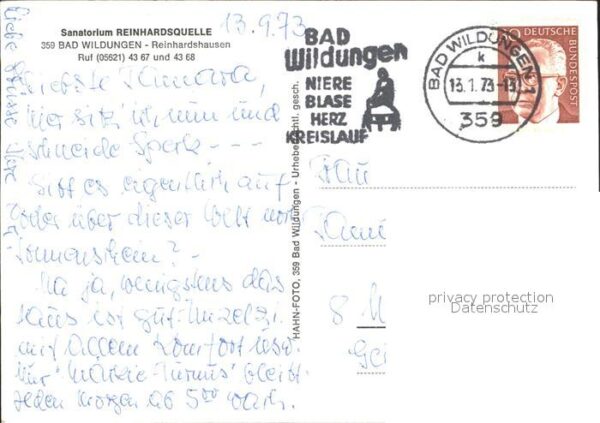 13.9.73
Sanatorium REINHARDSQUELLE
359 BAD WILDUNGEN - Reinhardshausen
Ruf (05621) 43 67 und 43 68
Liebste Tamara,
hier sitz ich nun und
schneide Speck - - -
Gibt es eigentlich auf
oder über dieser Welt noch
Sonnenschein? -
Na ja, wenigstens das
Haus ist gut. Einzelzi.
mit allem Komfort usw.
Nur bleibt
jeden Morgen ab 5⁰⁰ wach.
Liebe Grüsse Ihre
HAHN-FOTO, 359 Bad Wildungen - Urheberrechtl. gesch.
BAD
Wildungen
NIERE
BLASE
HERZ
KREISLAUF
BAD WILDUNGEN 1
k
13.1.73-13
359
DEUTSCHE
BUNDESPOST
Frau
8 M
privacy protection
Datenschutz